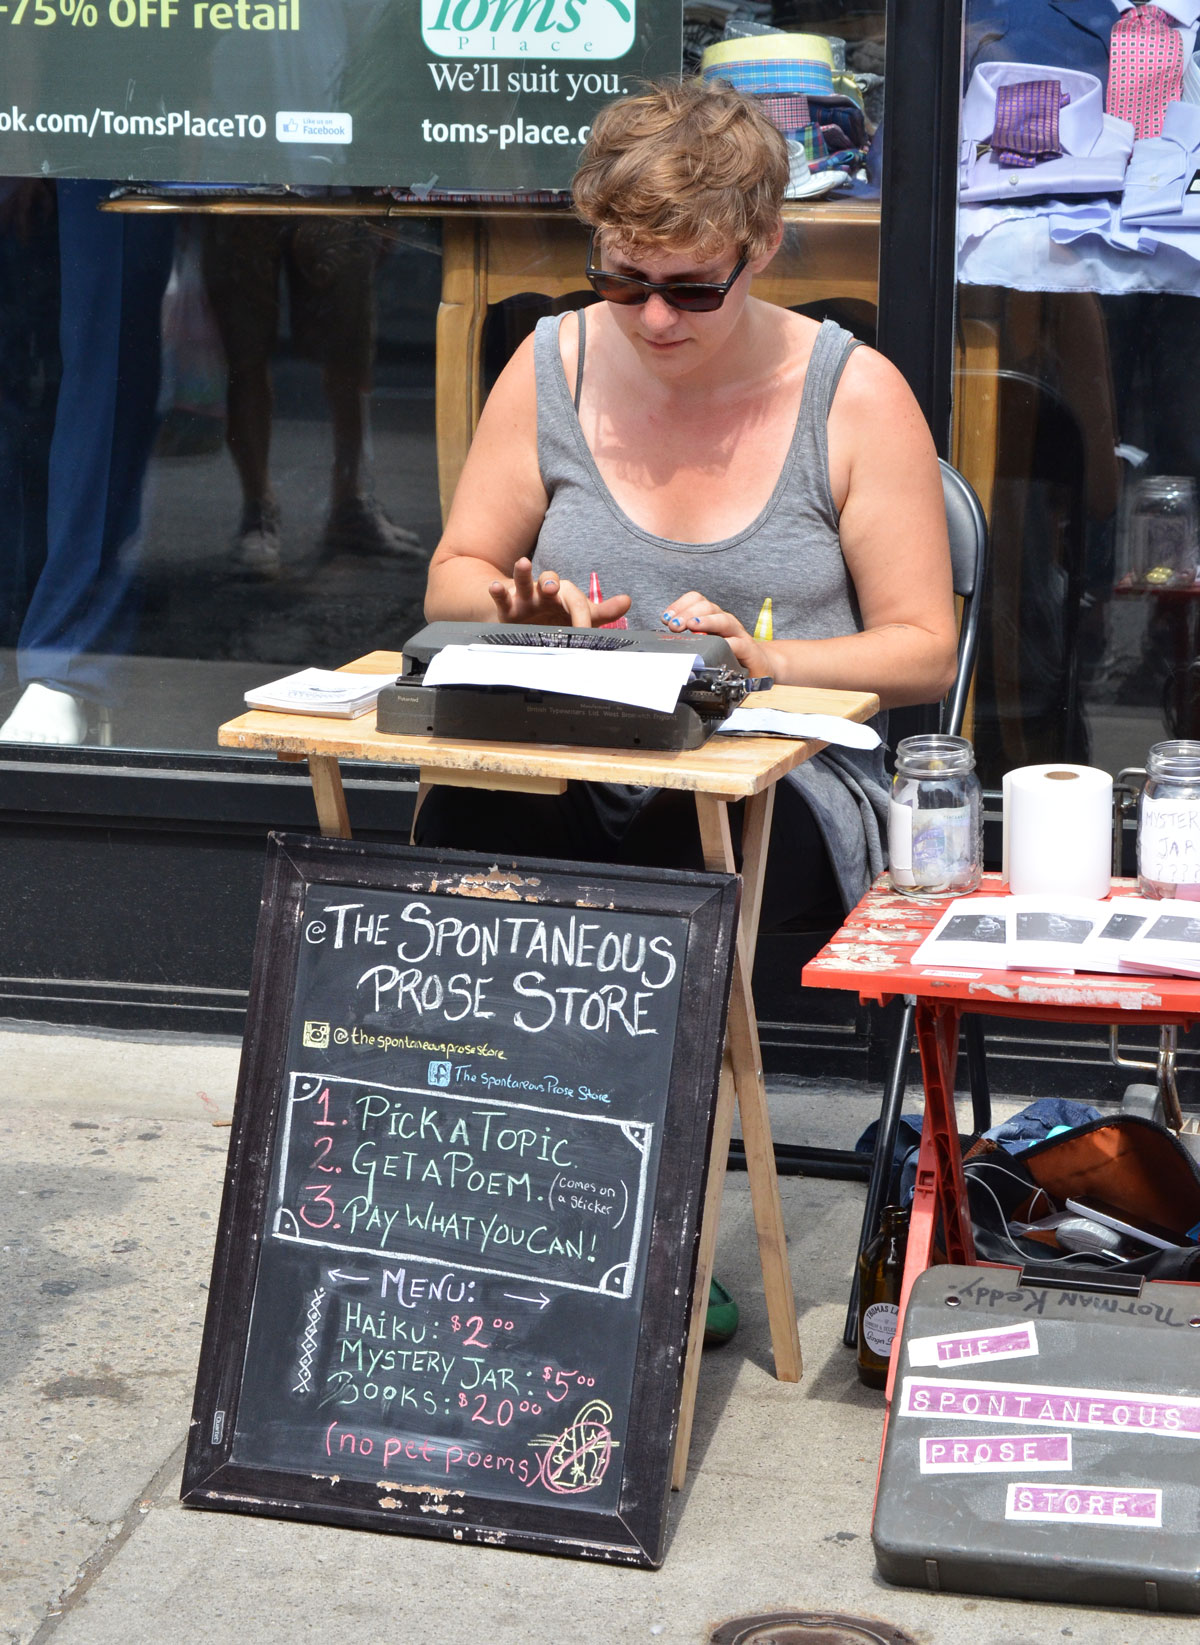 -75% OFF retail
Toms
Place
We'll suit you.
ok.com/TomsPlaceTO
Like us on
Facebook
toms-place.c
Patented
British Typewriters Ltd. West Bromwich England
MYSTER
JAR
????
@THE SPONTANEOUS
PROSE STORE
@thespontaneousprosestore
The Spontaneous Prose Store
1. PICK A TOPIC.
2. GET A POEM. (comes on
a sticker)
3. PAY WHAT YOU CAN!
← MENU: →
HAIKU: $2.00
MYSTERY JAR: $5.00
BOOKS: $20.00
(no pet poems)
Norman Keddy
THE
SPONTANEOUS
PROSE
STORE